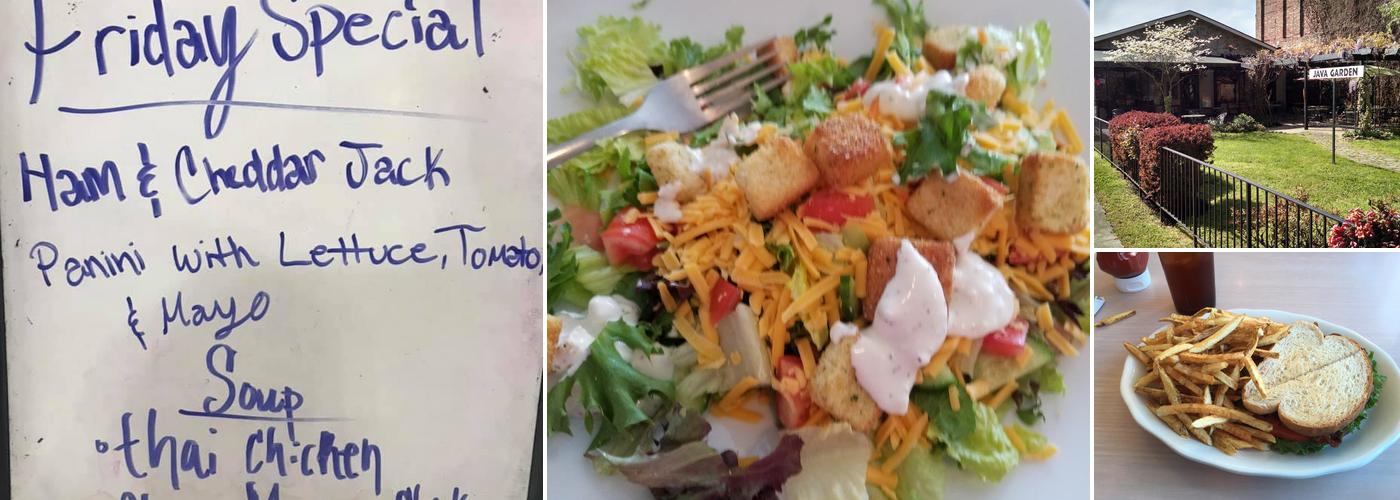 Friday Special
Ham & Cheddar Jack
Panini with Lettuce, Tomato,
& Mayo
Soup
• thai chicken
JAVA GARDEN